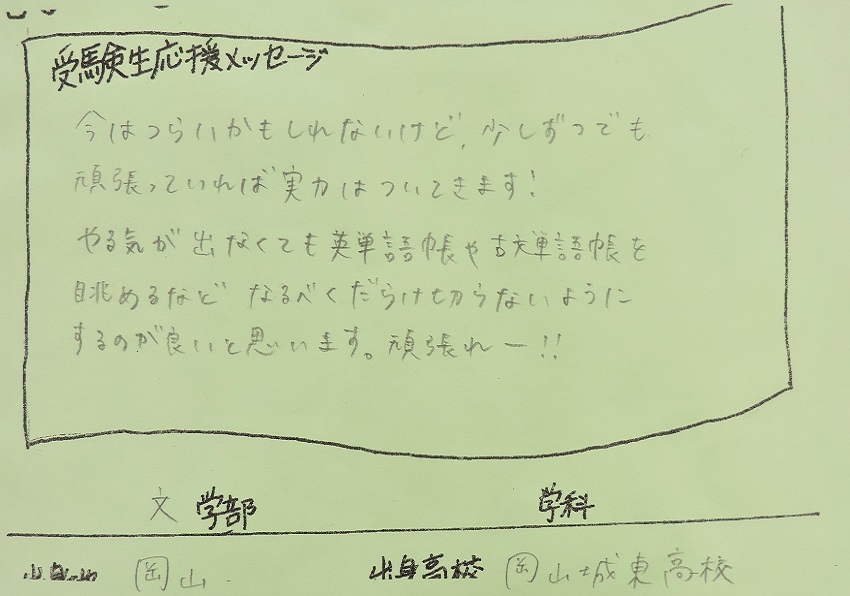 受験生応援メッセージ
今はつらいかもしれないけど、少しずつでも
頑張っていれば実力はついてきます!
やる気が出なくても英単語帳や古文単語帳を
眺めるなど なるべくだらけ切らないように
するのが良いと思います。頑張れー!!
文 学部 学科
岡山 出身高校 岡山城東高校